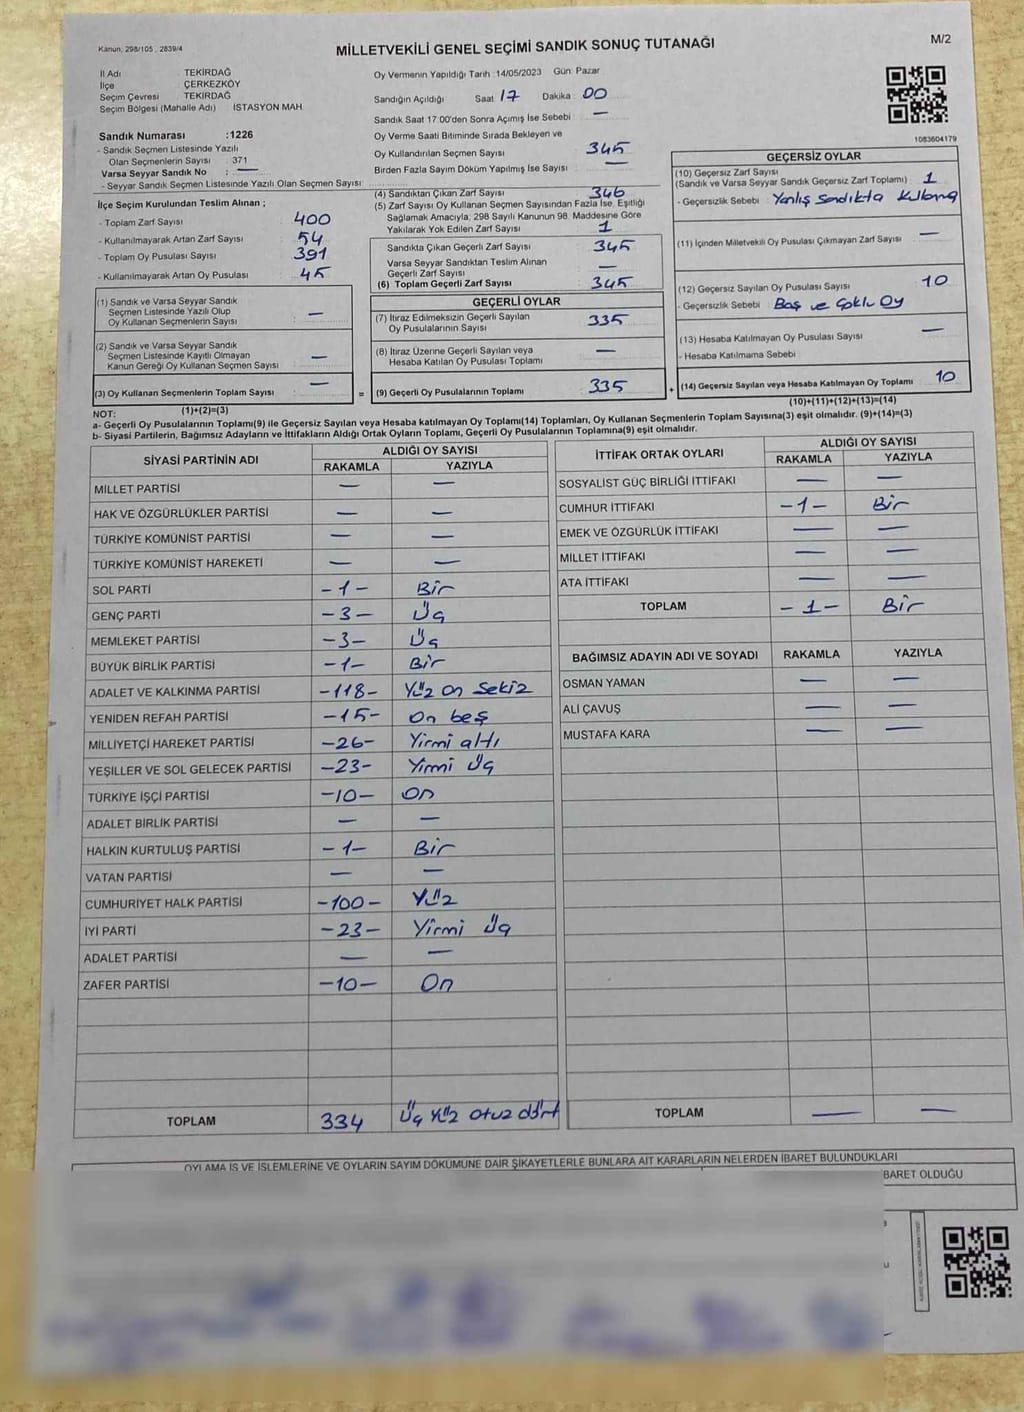 Kanun, 298/105 , 2839/4
MİLLETVEKİLİ GENEL SEÇİMİ SANDIK SONUÇ TUTANAĞI
M/2
İl Adı TEKİRDAĞ
İlçe ÇERKEZKÖY
Seçim Çevresi TEKİRDAĞ
Seçim Bölgesi (Mahalle Adı) İSTASYON MAH.
Sandık Numarası :1226
- Sandık Seçmen Listesinde Yazılı
Olan Seçmenlerin Sayısı : 371
Varsa Seyyar Sandık No : —
- Seyyar Sandık Seçmen Listesinde Yazılı Olan Seçmen Sayısı:
İlçe Seçim Kurulundan Teslim Alınan ;
- Toplam Zarf Sayısı : 400
- Kullanılmayarak Artan Zarf Sayısı : 54
- Toplam Oy Pusulası Sayısı : 391
- Kullanılmayarak Artan Oy Pusulası : 45
(1) Sandık ve Varsa Seyyar Sandık
Seçmen Listesinde Yazılı Olup
Oy Kullanan Seçmenlerin Sayısı —
(2) Sandık ve Varsa Seyyar Sandık
Seçmen Listesinde Kayıtlı Olmayan
Kanun Gereği Oy Kullanan Seçmen Sayısı —
(3) Oy Kullanan Seçmenlerin Toplam Sayısı —
(1)+(2)=(3)
Oy Vermenin Yapıldığı Tarih :14/05/2023 Gün: Pazar
Sandığın Açıldığı Saat 17 Dakika 00
Sandık Saat 17:00'den Sonra Açılmış İse Sebebi : —
Oy Verme Saati Bitiminde Sırada Bekleyen ve
Oy Kullandırılan Seçmen Sayısı 345
Birden Fazla Sayım Döküm Yapılmış İse Sayısı : —
(4) Sandıktan Çıkan Zarf Sayısı 346
(5) Zarf Sayısı Oy Kullanan Seçmen Sayısından Fazla İse, Eşitliği
Sağlamak Amacıyla; 298 Sayılı Kanunun 98. Maddesine Göre
Yakılarak Yok Edilen Zarf Sayısı 1
Sandıkta Çıkan Geçerli Zarf Sayısı 345
Varsa Seyyar Sandıktan Teslim Alınan
Geçerli Zarf Sayısı —
(6) Toplam Geçerli Zarf Sayısı 345
GEÇERLİ OYLAR
(7) İtiraz Edilmeksizin Geçerli Sayılan
Oy Pusulalarının Sayısı 335
(8) İtiraz Üzerine Geçerli Sayılan veya
Hesaba Katılan Oy Pusulası Toplamı —
= (9) Geçerli Oy Pusulalarının Toplamı 335 +
1083604179
GEÇERSİZ OYLAR
(10) Geçersiz Zarf Sayısı
(Sandık ve Varsa Seyyar Sandık Geçersiz Zarf Toplamı) 1
- Geçersizlik Sebebi : Yanlış Sandıkta
(11) İçinden Milletvekili Oy Pusulası Çıkmayan Zarf Sayısı —
(12) Geçersiz Sayılan Oy Pusulası Sayısı 10
- Geçersizlik Sebebi : Boş ve Çoklu Oy
(13) Hesaba Katılmayan Oy Pusulası Sayısı —
- Hesaba Katılmama Sebebi
(14) Geçersiz Sayılan veya Hesaba Katılmayan Oy Toplamı 10
(10)+(11)+(12)+(13)=(14)
NOT:
a- Geçerli Oy Pusulalarının Toplamı(9) ile Geçersiz Sayılan veya Hesaba katılmayan Oy Toplamı(14) Toplamları, Oy Kullanan Seçmenlerin Toplam Sayısına(3) eşit olmalıdır. (9)+(14)=(3)
b- Siyasi Partilerin, Bağımsız Adayların ve İttifakların Aldığı Ortak Oyların Toplamı, Geçerli Oy Pusulalarının Toplamına(9) eşit olmalıdır.
SİYASİ PARTİNİN ADI ALDIĞI OY SAYISI
RAKAMLA YAZIYLA
MİLLET PARTİSİ — —
HAK VE ÖZGÜRLÜKLER PARTİSİ — —
TÜRKİYE KOMÜNİST PARTİSİ — —
TÜRKİYE KOMÜNİST HAREKETİ — —
SOL PARTİ -1- Bir
GENÇ PARTİ -3- Üç
MEMLEKET PARTİSİ -3- Üç
BÜYÜK BİRLİK PARTİSİ -1- Bir
ADALET VE KALKINMA PARTİSİ -118- Yüz on Sekiz
YENİDEN REFAH PARTİSİ -15- On beş
MİLLİYETÇİ HAREKET PARTİSİ -26- Yirmi altı
YEŞİLLER VE SOL GELECEK PARTİSİ -23- Yirmi Üç
TÜRKİYE İŞÇİ PARTİSİ -10- On
ADALET BİRLİK PARTİSİ — —
HALKIN KURTULUŞ PARTİSİ -1- Bir
VATAN PARTİSİ — —
CUMHURİYET HALK PARTİSİ -100- Yüz
İYİ PARTİ -23- Yirmi Üç
ADALET PARTİSİ — —
ZAFER PARTİSİ -10- On
TOPLAM 334 Üç Yüz Otuz dört
İTTİFAK ORTAK OYLARI ALDIĞI OY SAYISI
RAKAMLA YAZIYLA
SOSYALİST GÜÇ BİRLİĞİ İTTİFAKI — —
CUMHUR İTTİFAKI -1- Bir
EMEK VE ÖZGÜRLÜK İTTİFAKI — —
MİLLET İTTİFAKI — —
ATA İTTİFAKI — —
TOPLAM -1- Bir
BAĞIMSIZ ADAYIN ADI VE SOYADI RAKAMLA YAZIYLA
OSMAN YAMAN — —
ALİ ÇAVUŞ — —
MUSTAFA KARA — —
TOPLAM — —
OYLAMA İŞ VE İŞLEMLERİNE VE OYLARIN SAYIM DÖKÜMÜNE DAİR ŞİKAYETLERLE BUNLARA AİT KARARLARIN NELERDEN İBARET BULUNDUKLARI
BARET OLDUĞU